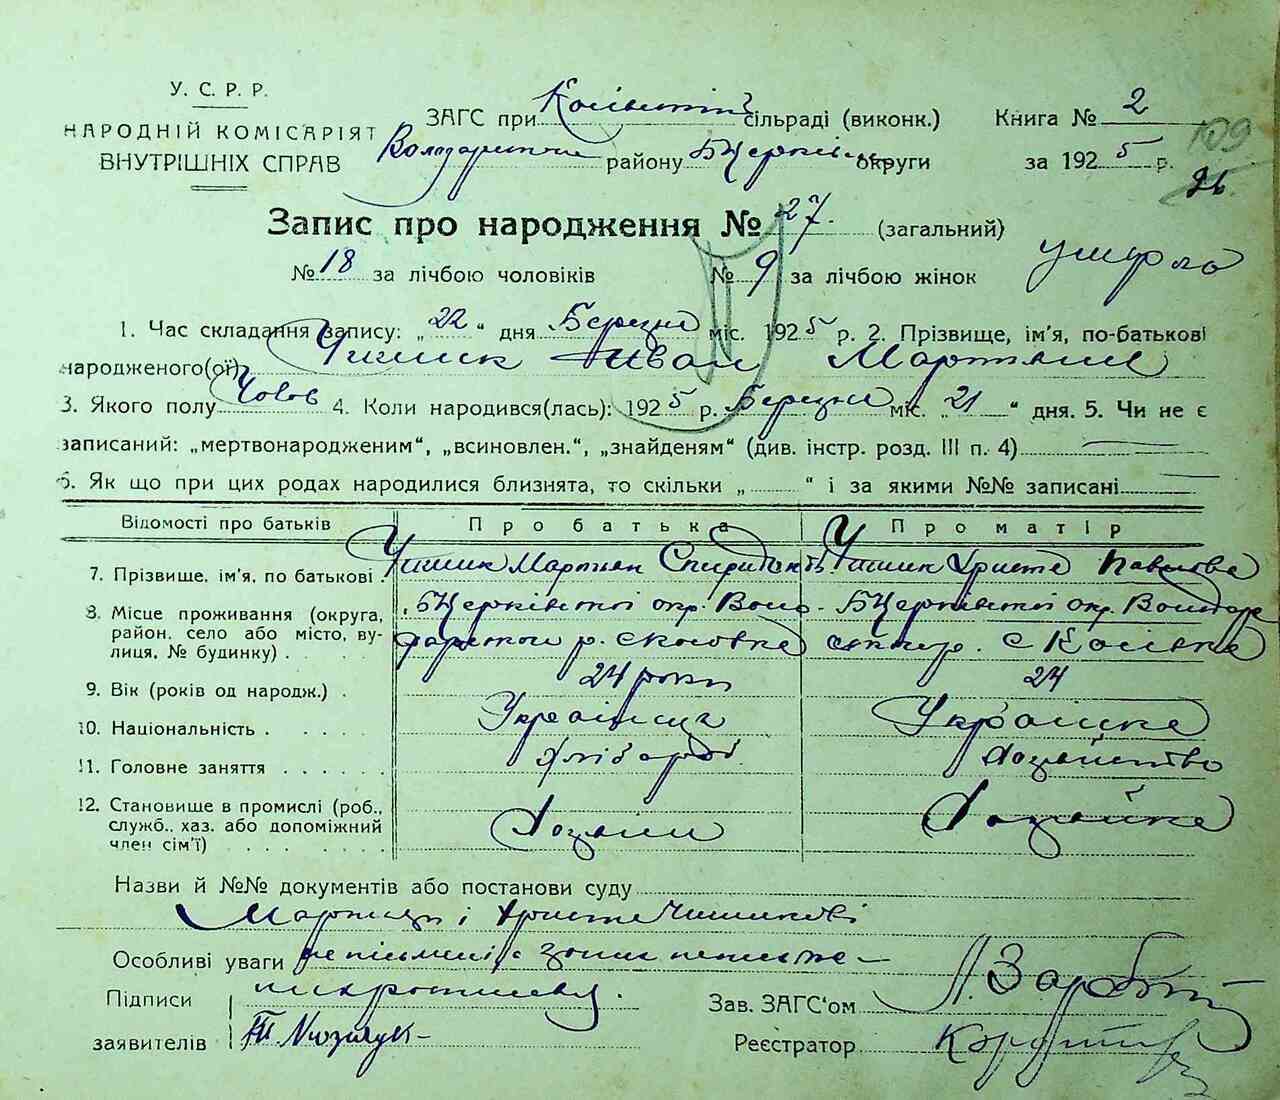 У. С. Р. Р.
НАРОДНІЙ КОМІСАРІЯТ
ВНУТРІШНІХ СПРАВ
ЗАГС при сільраді (виконк.) Книга № 2
району БЦерків округи за 1925 р.
109
26.
Запис про народження № 27. (загальний)
№ 18 за лічбою чоловіків № 9 за лічбою жінок
умерло
1. Час складання запису: „22“ дня Березня міс. 1925 р. 2. Прізвище, ім'я, по-батькові
народженого(ої) Чишик Иван
3. Якого полу Чолов 4. Коли народився(лась): 1925 р. Березня міс. „21“ дня. 5. Чи не є
записаний: „мертвонародженим“, „всиновлен.“, „знайденям“ (див. інстр. розд. III п. 4)
6. Як що при цих родах народилися близнята, то скільки „ “ і за якими №№ записані
Відомості про батьків Про батька Про матір
7. Прізвище, ім'я, по батькові Чишик Мартын Чишик Христя Павлова
8. Місце проживання (округа, район, село або місто, вулиця, № будинку) . БЦерківської окр. БЦерківської окр.
9. Вік (років од народж.) . 24 роки 24
10. Національність . . . . . Українець Українка
11. Головне заняття . . . . . . Хлібороб Хозяйство
12. Становище в промислі (роб., служб., хаз. або допоміжний член сім'ї) . . . . . . . . Хозяин Хозяйка
Назви й №№ документів або постанови суду
і Христя Чишикові
Особливі уваги
Підписи
заявителів
Зав. ЗАГС'ом
Реєстратор